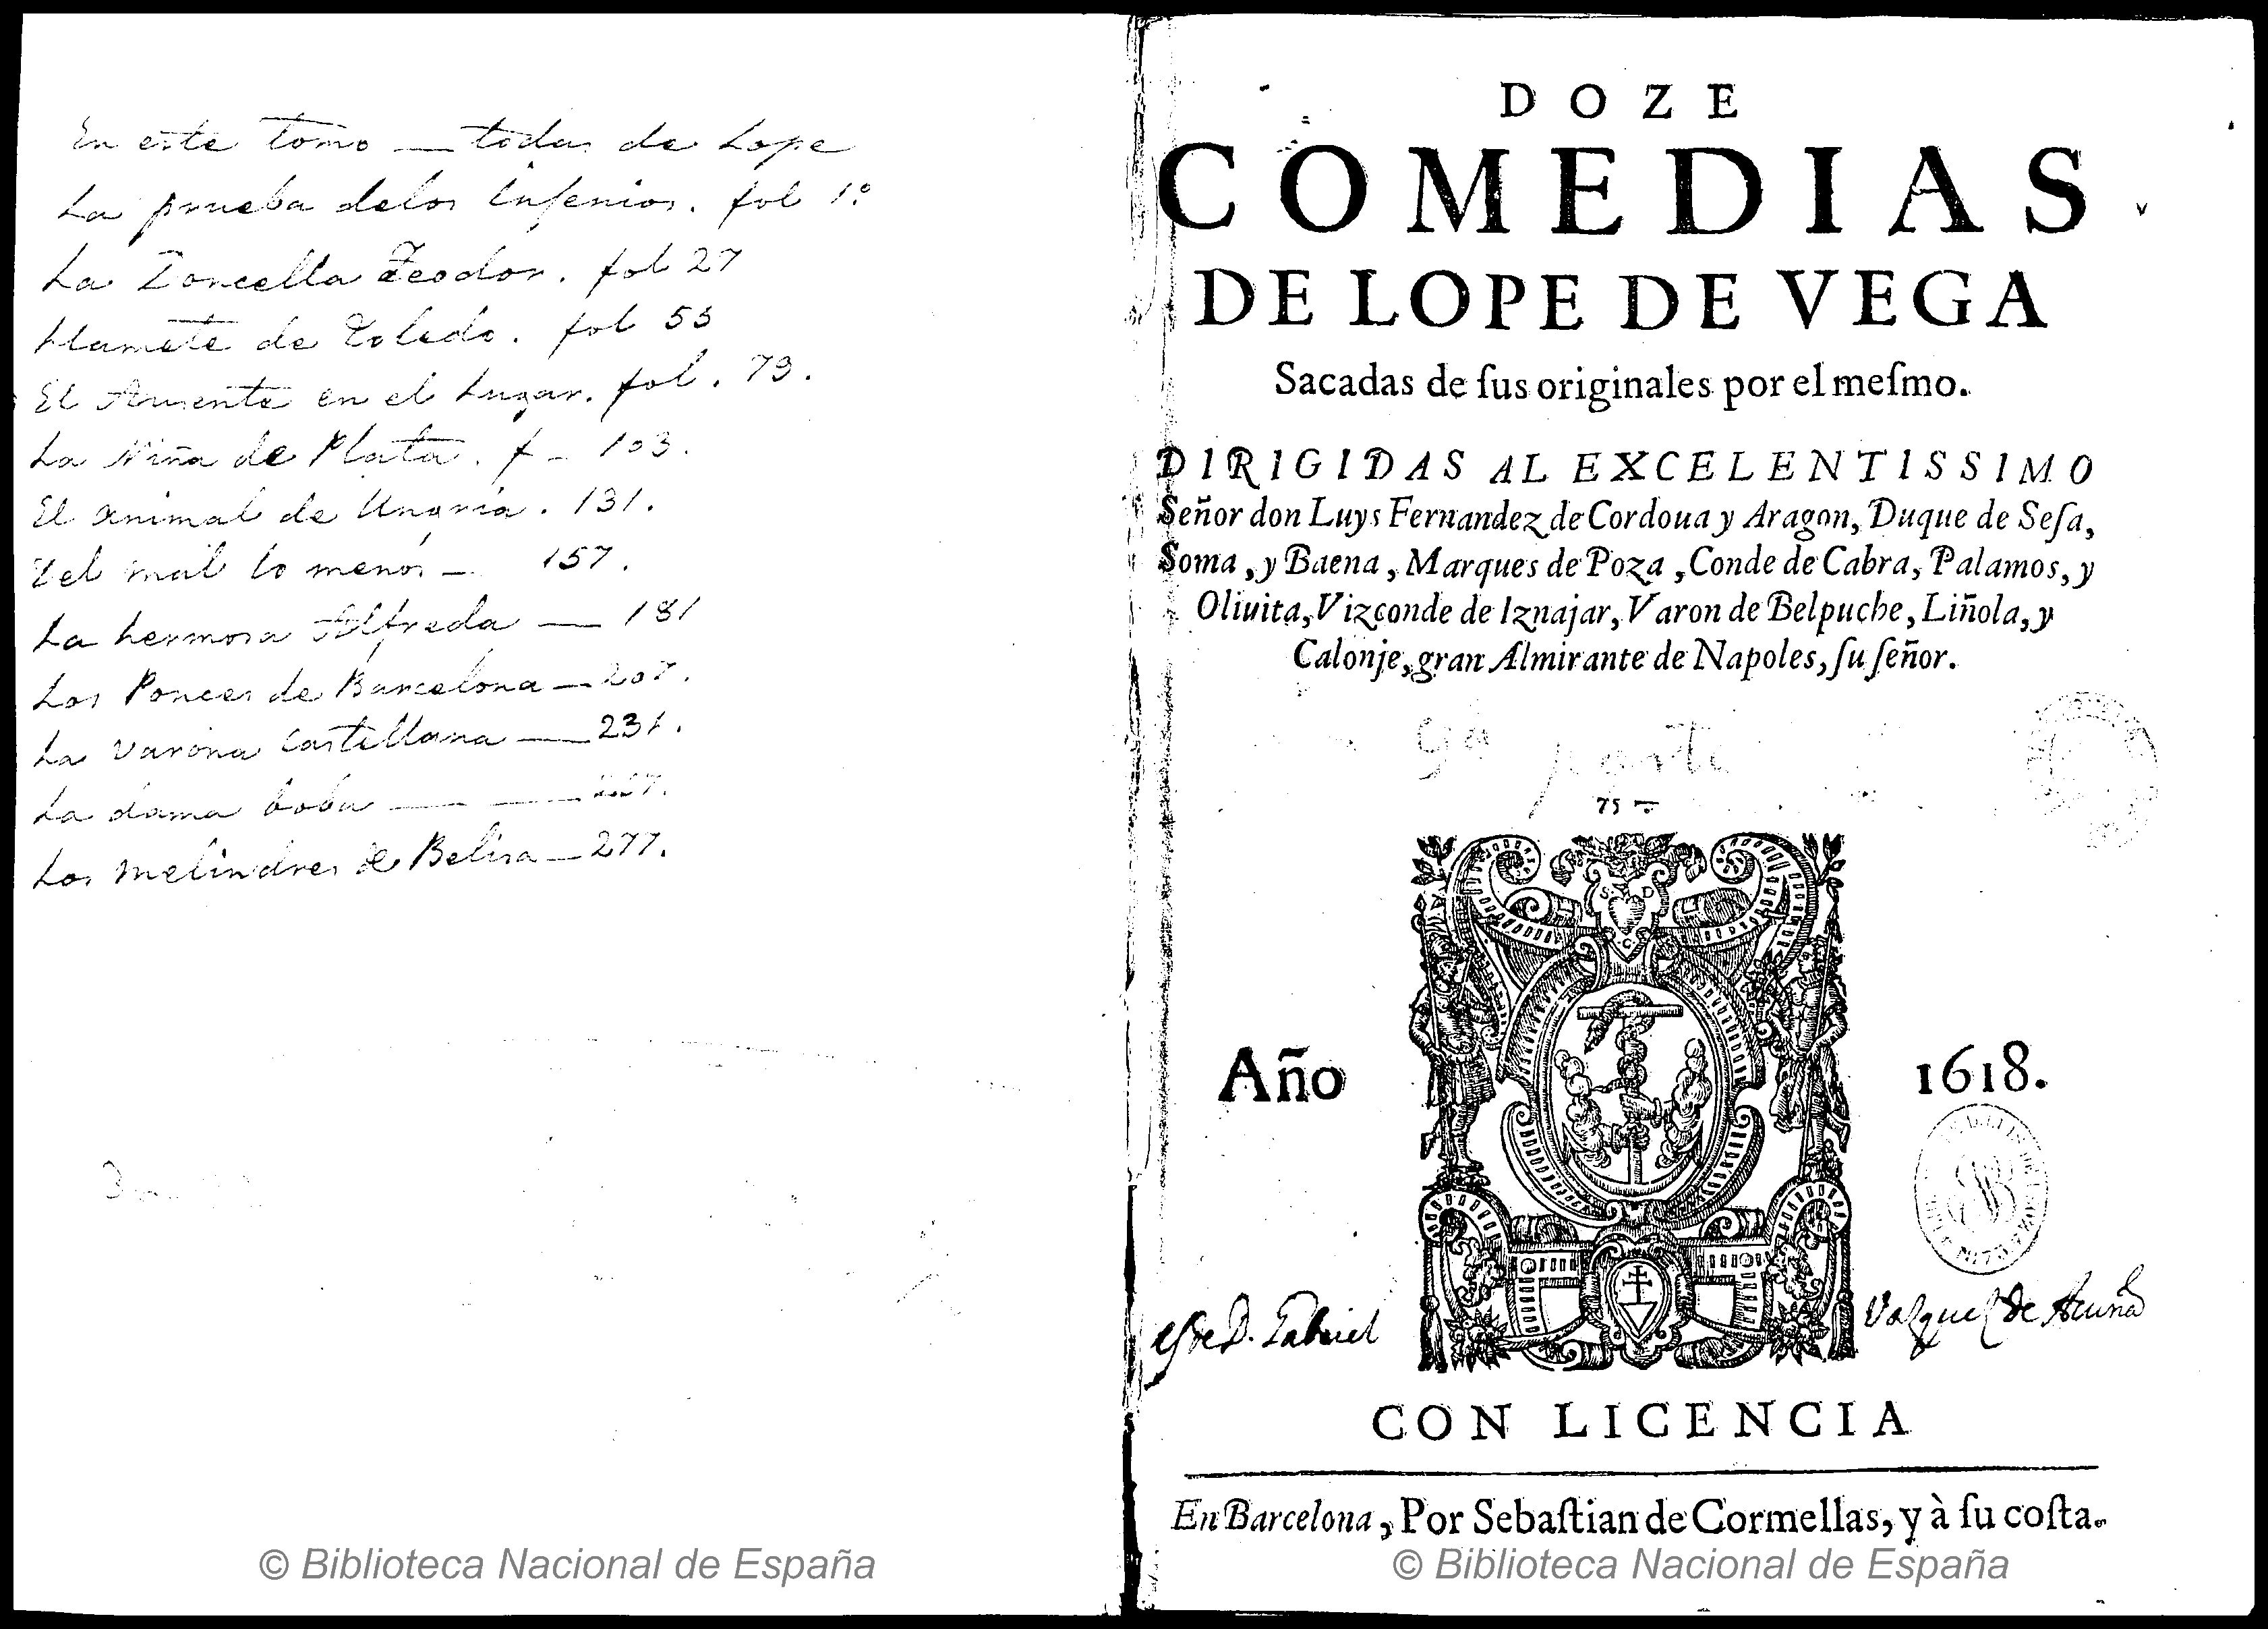 En este tomo — todas de Lope
La prueba delos Ingenios. fol 1º
La Doncella Teodor. fol 27
Hamete de Toledo. fol 55
El Ausente en el Lugar. fol. 73.
La Niña de Plata. f - 103.
El animal de Ungria. 131.
Del mal lo menos - 157.
La hermosa Alfreda — 181
Los Ponces de Barcelona — 207.
La Varona Castellana — 231.
La dama boba — —
Los melindres de Belisa — 277.
© Biblioteca Nacional de España
DOZE
COMEDIAS
DE LOPE DE VEGA
Sacadas de ſus originales por el meſmo.
DIRIGIDAS AL EXCELENTISSIMO
Señor don Luys Fernandez de Cordoua y Aragon, Duque de Seſa,
Soma, y Baena, Marques de Poza, Conde de Cabra, Palamos, y
Oliuita, Vizconde de Iznajar, Varon de Belpuche, Liñola, y
Calonje, gran Almirante de Napoles, ſu ſeñor.
9ª parte
75
S D
C
Año 1618.
D. Gabriel Vazquez de Acuña
CON LICENCIA
En Barcelona, Por Sebaſtian de Cormellas, y à ſu coſta.
© Biblioteca Nacional de España